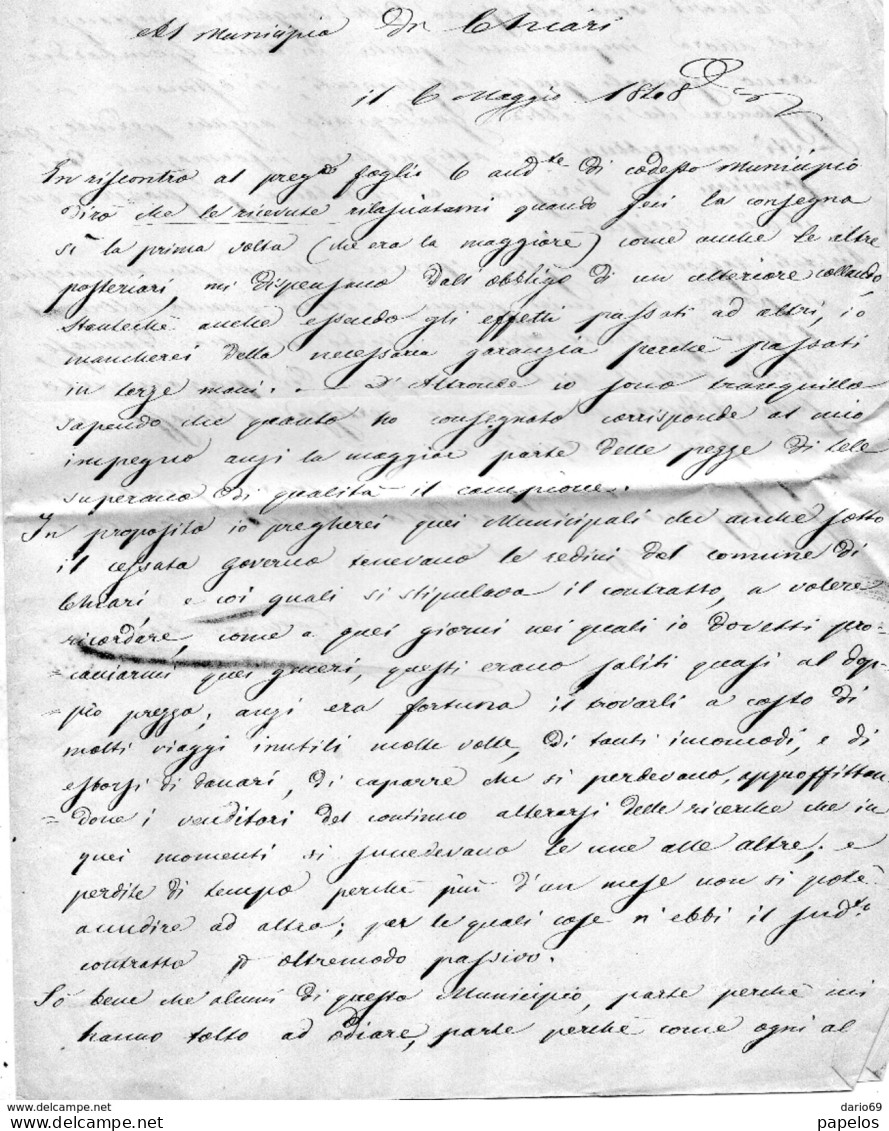 Al Municipio di Chiari
il 6 Maggio 1848
In riscontro al preg.º foglio 6 and.te di codesto Municipio
dirò che le ricevute rilasciatami quando feci la consegna
sì la prima volta (che era la maggiore) come anche le altre
posteriori, mi dispensano dall'obbligo di un ulteriore collaudo,
stantechè anche essendo gli effetti passati ad altri, io
mancherei della necessaria garanzia perchè passati
in terze mani. - D'Altronde io sono tranquillo
sapendo che quanto ho consegnato corrisponde al mio
impegno anzi la maggior parte delle pezze di tele
superano di qualità il campione.
In proposito io pregherei quei Municipali che anche sotto
il cessato governo tenevano le redini del comune di
Chiari e coi quali si stipulava il contratto, a volere
ricordare, come a quei giorni nei quali io dovetti pro=
=cacciarmi quei generi, questi erano saliti quasi al dop=
=pio prezzo; anzi era fortuna il trovarli a costo di
molti viaggi inutili molte volte, di tanti incomodi, e di
esborsi di danari, di caparre che si perdevano, approffittan=
=done i venditori del continuo alterarsi delle ricerche che in
quei momenti si succedevano le une alle altre; e
perdite di tempo perchè più d'un mese non si potè
accudire ad altro; per le quali cose n'ebbi il sud.to
contratto oltremodo passivo.
Sò bene che alcuni di questo Municipio, parte perchè mi
hanno tolto ad odiare, parte perchè come ogni al
www.delcampe.net
dario69
papelos